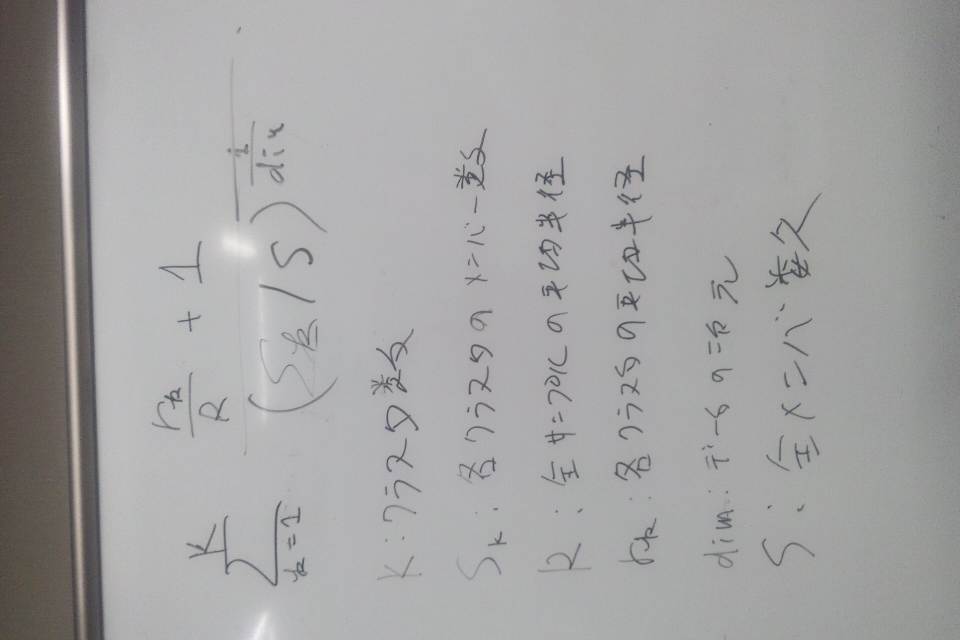 K r_k/R + 1
Σ
k=1 (S_k/S)^(1/dim)
K:クラスタ数
S_k:各クラスタのメンバー数
R:全サンプルの平均半径
r_k:各クラスタの平均半径
dim:データの次元
S:全メンバ数